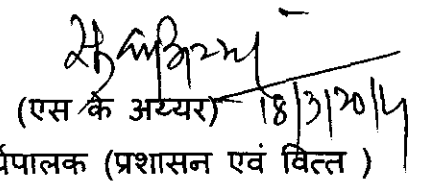 (एस के अय्यर) 18/3/2014
र्यपालक (प्रशासन एवं वित्त )